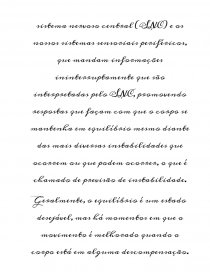 sistema nervoso central (SNC) e os
nossos sistemas sensoriais periféricos,
que mandam informações
ininterruptamente que são
interpretados pelo SNC, promovendo
respostas que façam com que o corpo se
mantenha em equilíbrio mesmo diante
das mais diversas instabilidades que
ocorrem ou que podem ocorrer, o que é
chamado de precisão de instabilidade.
Geralmente, o equilíbrio é um estado
desejável, mas há momentos em que o
movimento é melhorado quando o
corpo está em alguma descompensação.